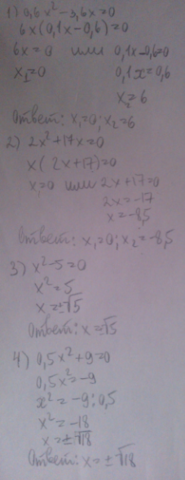 1) 0,6x²-3,6x=0
6x(0,1x-0,6)=0
6x=0 или 0,1x-0,6=0
x₁=0 0,1x=0,6
x₂=6
Ответ: x₁=0; x₂=6
2) 2x²+17x=0
x(2x+17)=0
x₁=0 или 2x+17=0
2x=-17
x=-8,5
Ответ: x₁=0; x₂=-8,5
3) x²-5=0
x²=5
x=±√5
Ответ: x=√5
4) 0,5x²+9=0
0,5x²=-9
x²=-9:0,5
x²=-18
x=±√18
Ответ: x=±√18